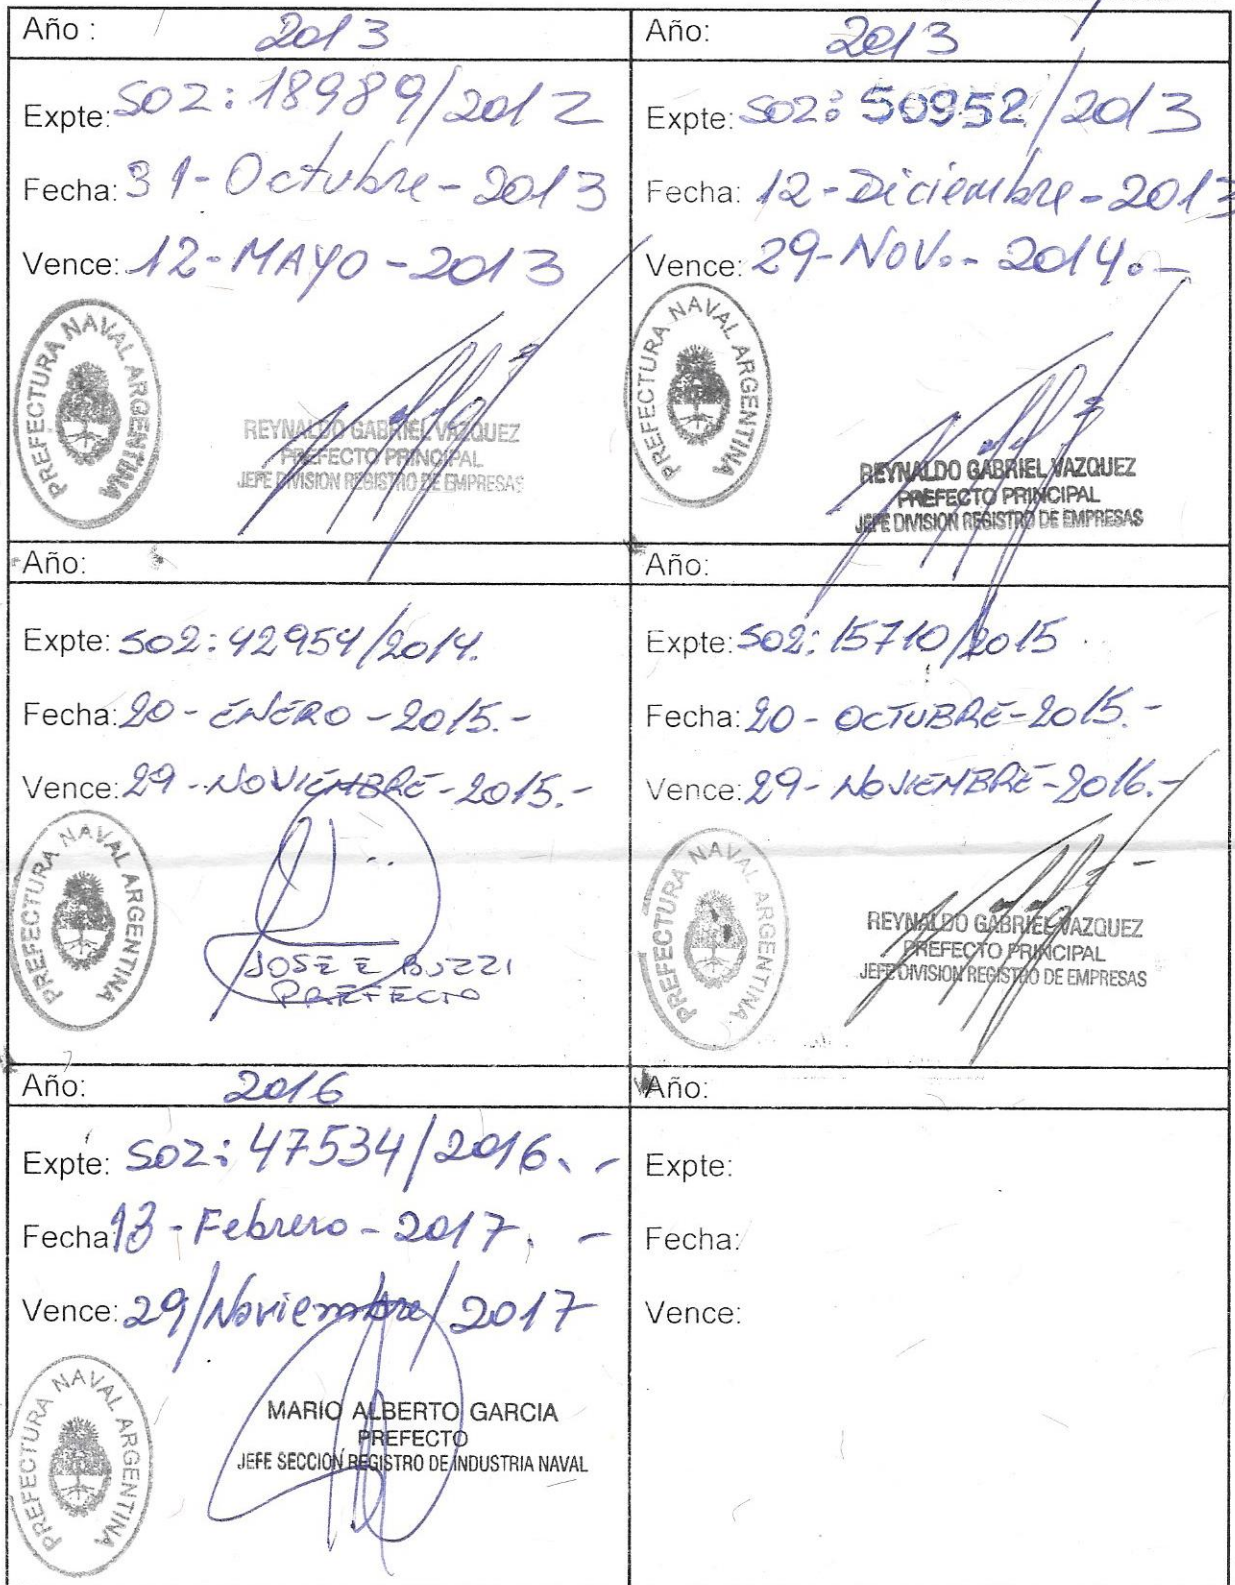 Año : 2013
Expte: S02: 18989/2012
Fecha: 31-Octubre-2013
Vence: 12-MAYO-2013
PREFECTURA NAVAL ARGENTINA
REYNALDO GABRIEL VAZQUEZ
PREFECTO PRINCIPAL
JEFE DIVISION REGISTRO DE EMPRESAS
Año: 2013
Expte: S02: 50952/2013
Fecha: 12-Diciembre-2013
Vence: 29-NOV.-2014.-
PREFECTURA NAVAL ARGENTINA
REYNALDO GABRIEL VAZQUEZ
PREFECTO PRINCIPAL
JEFE DIVISION REGISTRO DE EMPRESAS
Año:
Expte: S02: 42954/2014.
Fecha: 20-ENERO-2015.-
Vence: 29-NOVIEMBRE-2015.-
PREFECTURA NAVAL ARGENTINA
JOSE E BUZZI
PREFECTO
Año:
Expte: S02: 15710/2015
Fecha: 20-OCTUBRE-2015.-
Vence: 29-NOVIEMBRE-2016.-
PREFECTURA NAVAL ARGENTINA
REYNALDO GABRIEL VAZQUEZ
PREFECTO PRINCIPAL
JEFE DIVISION REGISTRO DE EMPRESAS
Año: 2016
Expte: S02: 47534/2016.-
Fecha: 13-Febrero-2017.-
Vence: 29/Noviembre/2017
PREFECTURA NAVAL ARGENTINA
MARIO ALBERTO GARCIA
PREFECTO
JEFE SECCION REGISTRO DE INDUSTRIA NAVAL
Año:
Expte:
Fecha:
Vence: